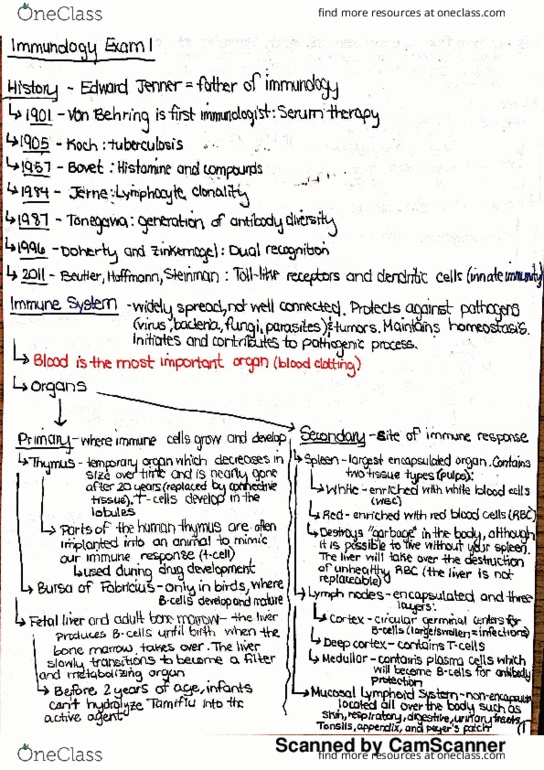 OneClass
find more resources at oneclass.com
Immunology Exam 1
History - Edward Jenner = father of immunology
↳ 1901 - Von Behring is first immunologist: Serum therapy
↳ 1905 - Koch: tuberculosis
↳ 1957 - Bovet: Histamine and compounds
↳ 1984 - Jerne: Lymphocyte clonality
↳ 1987 - Tonegawa: generation of antibody diversity
↳ 1996 - Doherty and Zinkernagel: Dual recognition
↳ 2011 - Beutler, Hoffmann, Steinman: Toll-like receptors and dendritic cells (innate immunity)
Immune System - widely spread, not well connected. Protects against pathogens
(virus, bacteria, fungi, parasites) & tumors. Maintains homeostasis.
Initiates and contributes to pathogenic process.
↳ Blood is the most important organ (blood clotting)
↳ organs
Primary - where immune cells grow and develop
↳ Thymus - temporary organ which decreases in
size over time and is nearly gone
after 20 years (replaced by connective
tissue), T-cells develop in the
lobules
↳ Parts of the human thymus are often
implanted into an animal to mimic
our immune response (t-cell)
↳ used during drug development
↳ Bursa of Fabricius - only in birds, where
B-cells develop and mature
↳ Fetal liver and adult bone marrow - the liver
produces B-cells until birth when the
bone marrow takes over. The liver
slowly transitions to become a filter
and metabolizing organ
↳ Before 2 years of age, infants
can't hydrolyze Tamiflu into the
active agent
Secondary - site of immune response
↳ Spleen - largest encapsulated organ. Contains
two tissue types (pulps):
↳ White - enriched with white blood cells
(WBC)
↳ Red - enriched with red blood cells (RBC)
↳ Destroys "garbage" in the body, although
it is possible to live without your spleen.
The liver will take over the destruction
of unhealthy RBC (the liver is not
replaceable)
↳ Lymph nodes - encapsulated and three
layers:
↳ Cortex - circular germinal centers for
B-cells (large/swollen = infections)
↳ Deep cortex - contains T-cells
↳ Medullar - contains plasma cells which
will become B-cells for antibody
protection
↳ Mucosal Lymphoid System - non-encapsuln
located all over the body such as
skin, respiratory, digestive, urinary tracts,
Tonsils, appendix, and peyer's patch
Scanned by CamScanner
OneClass
find more resources at oneclass.com